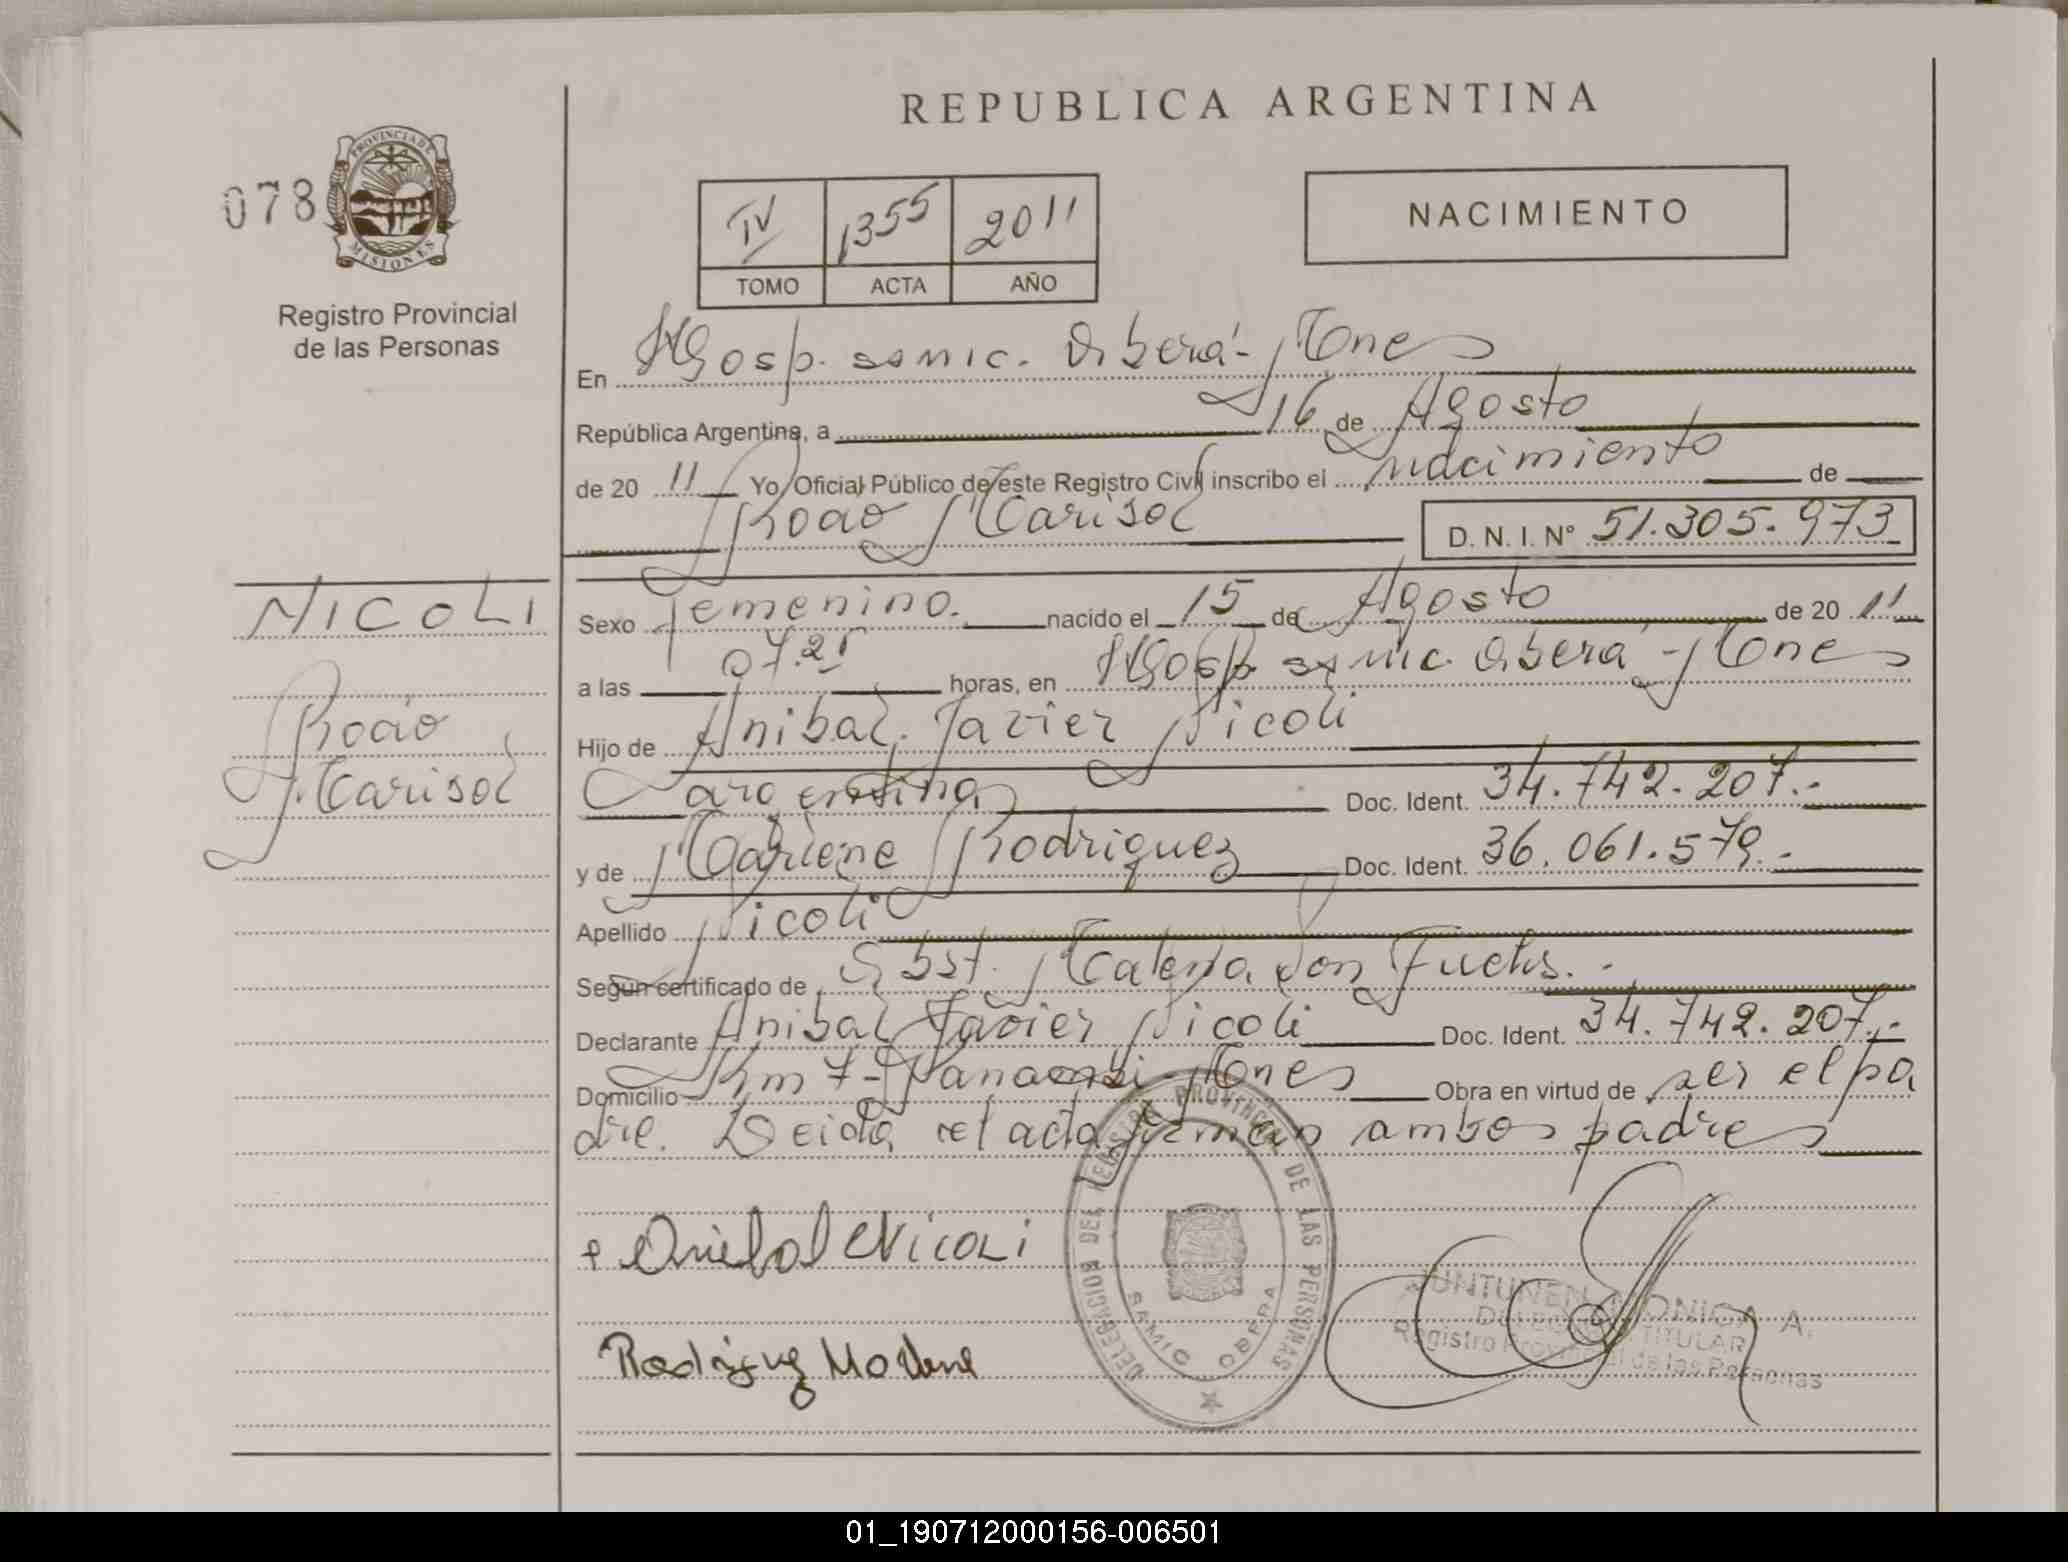 REPUBLICA ARGENTINA
078
PROVINCIA DE
MISIONES
Registro Provincial
de las Personas
IV 1355 2011
TOMO ACTA AÑO
NACIMIENTO
En Hosp. samic. Oberá - Mnes
República Argentina, a 16 de Agosto
de 20 11 Yo, Oficial Público de este Registro Civil inscribo el nacimiento de
Rocío Marisol D. N. I. N° 51.305.973
NICOLI
Rocío
Marisol
Sexo femenino. nacido el 15 de Agosto de 20 11
a las 07.25 horas, en Hosp. samic. Oberá - Mnes
Hijo de Anibal Javier Nicoli
argentina Doc. Ident. 34.742.207.-
y de Marlene Rodriguez Doc. Ident. 36.061.579.-
Apellido Nicoli
Según certificado de Obst. Von Fuchs.-
Declarante Anibal Javier Nicoli Doc. Ident. 34.742.207.-
Domicilio Km 7 - Panambi - Mnes Obra en virtud de ser el pa
dre. Leida el acta firman ambos padres
Anibal Nicoli
Rodriguez Marlene
DELEGACION DEL REGISTRO PROVINCIAL DE LAS PERSONAS
SAMIC OBERA
MONICA A.
TITULAR
Registro Provincial de las Personas
01_190712000156-006501